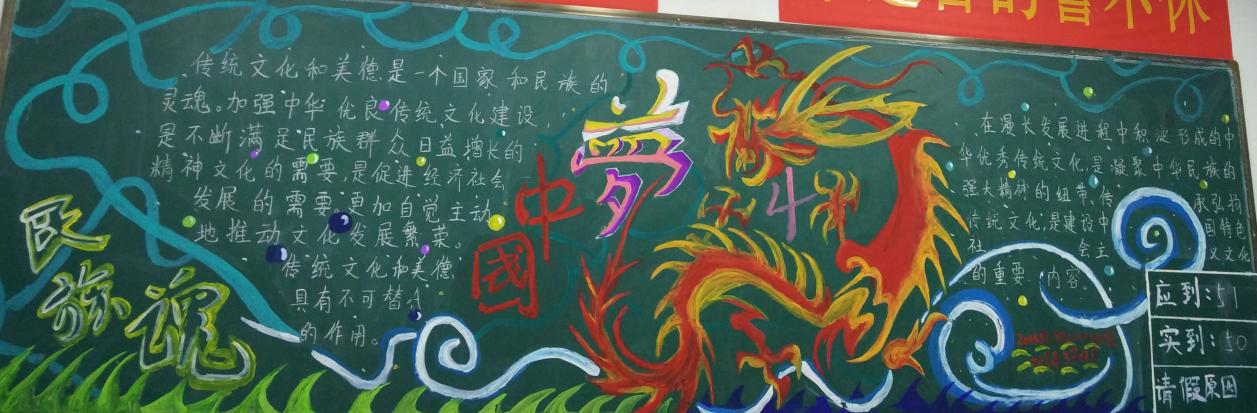 传统文化和美德是一个国家和民族的
灵魂。加强中华优良传统文化建设,
是不断满足民族群众日益增长的
精神文化的需要,是促进经济社会
发展的需要,更加自觉主动
地推动文化发展繁荣。
传统文化和美德
具有不可替
的作用。
民
族
魂
中
國
夢
在漫长发展进程中积淀形成的中
华优秀传统文化,是凝聚中华民族的
强大精神的纽带,传承弘扬
传统文化,是建设中国特色
社会主义文化
的重要内容。
应到:51
实到:50
请假原因